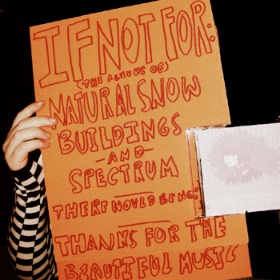 IF NOT FOR:
(THE ALBUMS OF)
NATURAL SNOW
BUILDINGS
-AND-
SPECTRUM
THERE WOULD BE NO:
THANKS FOR THE
BEAUTIFUL MUSIC